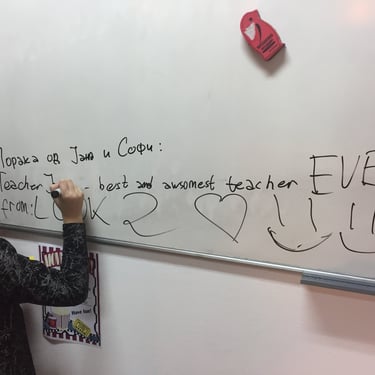 Порака од Јана и Софи:
Teacher J - best and awsomest teacher EVE
from: LOOK 2 ♡ !! !!
Have fun!